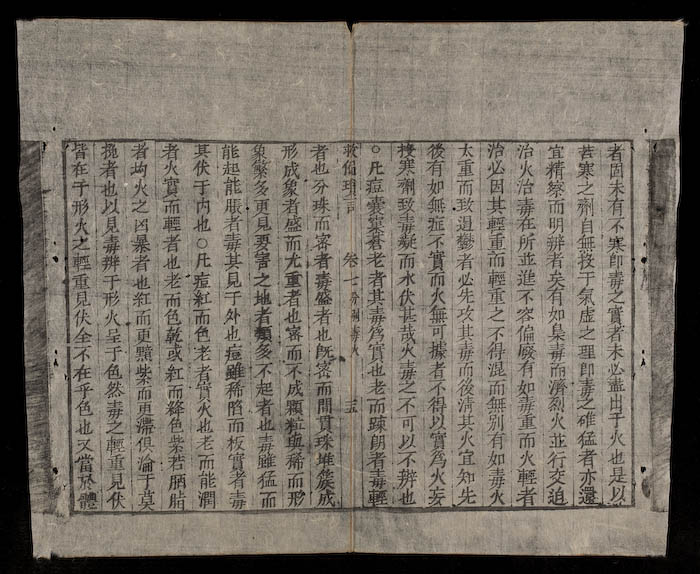 者固未有不寒即毒之實者未必盡出于火也是以
苦寒之劑自無投于氣虛之理即毒之確猛者亦還
宜精察而明辨者矣有如梟毒而濟烈火並行交迫
治火治毒在所並進不容偏廢有如毒重而火輕者
治必因其輕重而輕重之不得混而無別有如毒火
太重而致遏鬱者必先攻其毒而後清其火宜知先
後有如無症不實而火無可據者不得以實爲火妄
投寒劑致毒凝而水伏甚哉火毒之不可以不辨也
○凡痘囊窠蒼老者其毒爲實也老而疎朗者毒輕
救偏瑣言 卷七 分別毒火
者也分珠而密者毒盛者也既密而間貫珠堆簇成
形成象者盛而尤重者也密而不成顆粒與稀而形
象繁多更見要害之地者類多不起者也毒雖猛而
能起能脹者毒其見于外也痘雖稀陷而板實者毒
其伏于内也○凡痘紅而色老者實火也老而能潤
者火實而輕者也老而色乾或紅而絳色紫若胭脂
者均火之凶暴者也紅而更黯紫而更滯俱淪于莫
挽者也以見毒辨于形火呈于色然毒之輕重見伏
皆在于形火之輕重見伏全不在乎色也又當於體